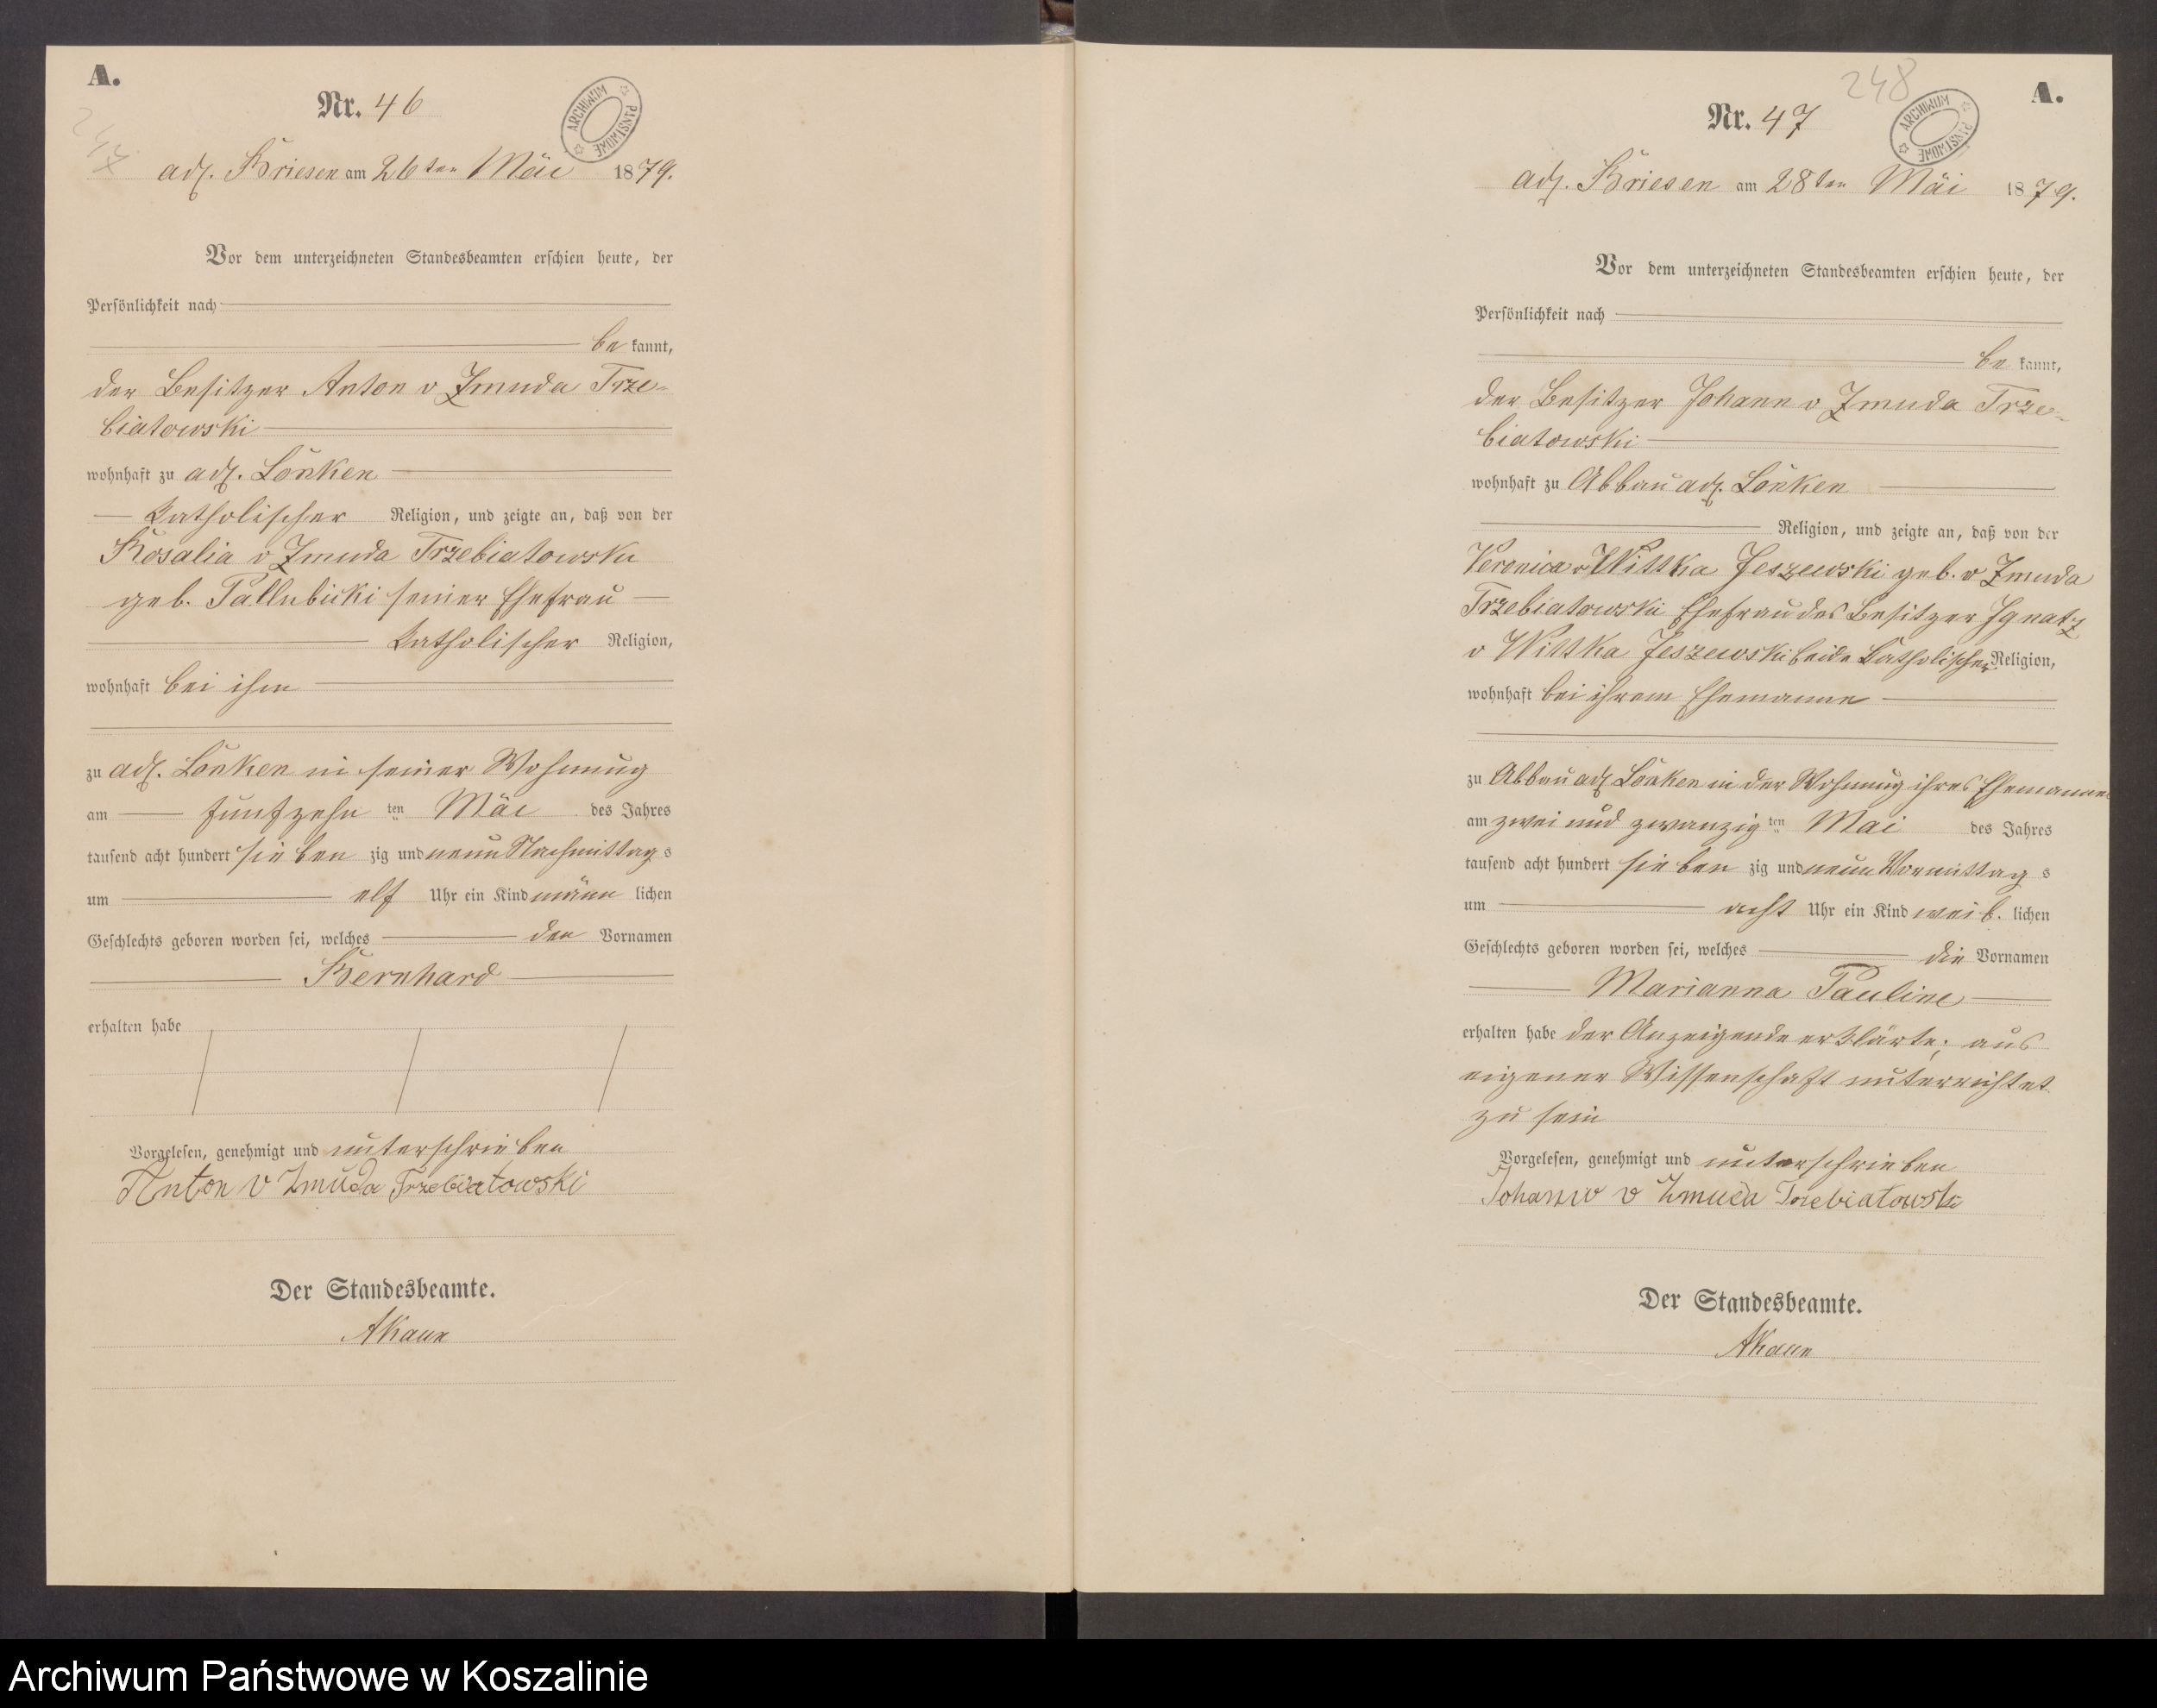 A.
Nr. 46
247
ARCHIWUM PAŃSTWOWE
adl. Briesen am 26ten Mai 1879.
Vor dem unterzeichneten Standesbeamten erschien heute, der
Persönlichkeit nach
be kannt,
der Besitzer Anton v Zmuda Trze-
biatowski
wohnhaft zu adl. Lonken
Katholischer Religion, und zeigte an, daß von der
Rosalia v Zmuda Trzebiatowska
geb. Pallubicki seiner Ehefrau
Katholischer Religion,
wohnhaft bei ihm
zu adl. Lonken in seiner Wohnung
am funfzehn ten Mai des Jahres
tausend acht hundert sieben zig und neun Nachmittag s
um elf Uhr ein Kind männ lichen
Geschlechts geboren worden sei, welches den Vornamen
Bernhard
erhalten habe
Vorgelesen, genehmigt und unterschrieben
Anton v Zmuda Trzebiatowski
Der Standesbeamte.
AKaun
248
A.
Nr. 47
ARCHIWUM PAŃSTWOWE
adl. Briesen am 28ten Mai 1879.
Vor dem unterzeichneten Standesbeamten erschien heute, der
Persönlichkeit nach
be kannt,
der Besitzer Johann v Zmuda Trze-
biatowski
wohnhaft zu Abbau adl. Lonken
Religion, und zeigte an, daß von der
Veronica v Wittka Jeszewski geb. v Zmuda
Trzebiatowski Ehefrau des Besitzer Ignatz
v Wittka Jeszewski beide Katholischer Religion,
wohnhaft bei ihrem Ehemanne
zu Abbau adl Lonken in der Wohnung ihres Ehemannes
am zwei und zwanzig ten Mai des Jahres
tausend acht hundert sieben zig und neun Vormittag s
um acht Uhr ein Kind weib. lichen
Geschlechts geboren worden sei, welches die Vornamen
Marianna Pauline
erhalten habe der Anzeigende erklärte; aus
eigener Wissenschaft unterrichtet
zu sein
Vorgelesen, genehmigt und unterschrieben
Johann v Zmuda Trzebiatowski
Der Standesbeamte.
AKaun
Archiwum Państwowe w Koszalinie